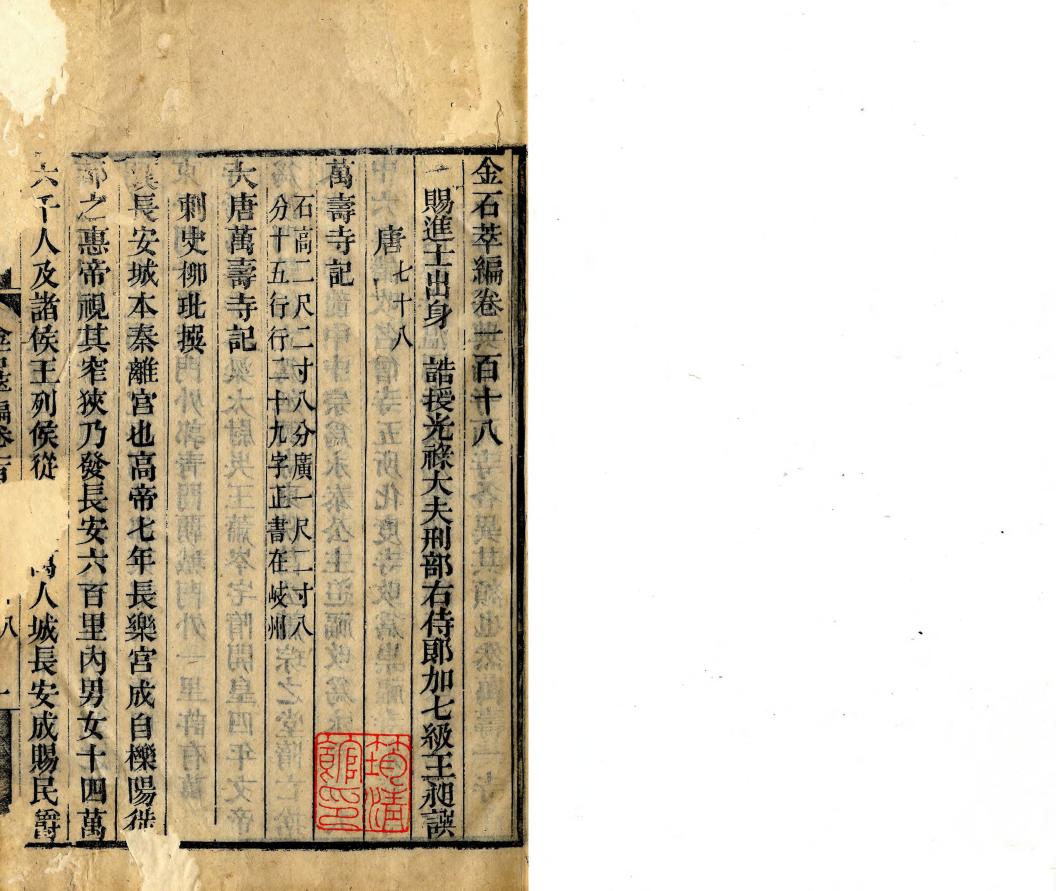 金石萃編卷一百十八
賜進士出身 誥授光祿大夫刑部右侍郎加七級王昶譔
唐七十八
萬壽寺記
石高二尺二寸八分廣一尺二寸八
分十五行行二十九字正書在岐州
大唐萬壽寺記
刺史柳玭撰
漢長安城本秦離宮也高帝七年長樂宮成自櫟陽徙
都之惠帝視其窄狹乃發長安六百里內男女十四萬
六千人及諸侯王列侯從 萬人城長安成賜民爵
金石萃編卷一百 八 一